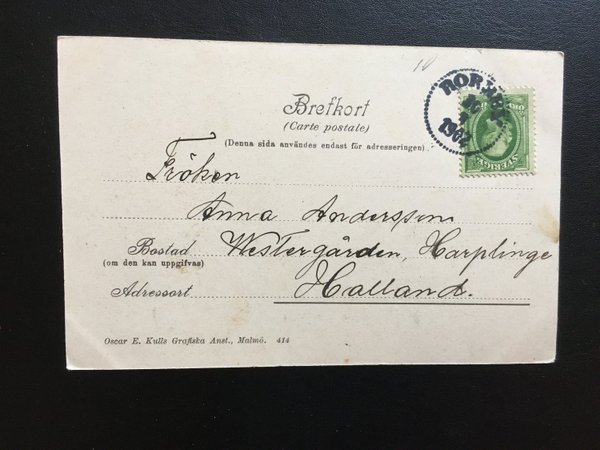 10
Brefkort
(Carte postale)
(Denna sida användes endast för adresseringen)
1902
SVERIGE
Fröken
Anna Andersson
Bostad Westergården, Harplinge
(om den kan uppgifvas)
Adressort Halland.
Oscar E. Kulls Grafiska Anst., Malmö. 414